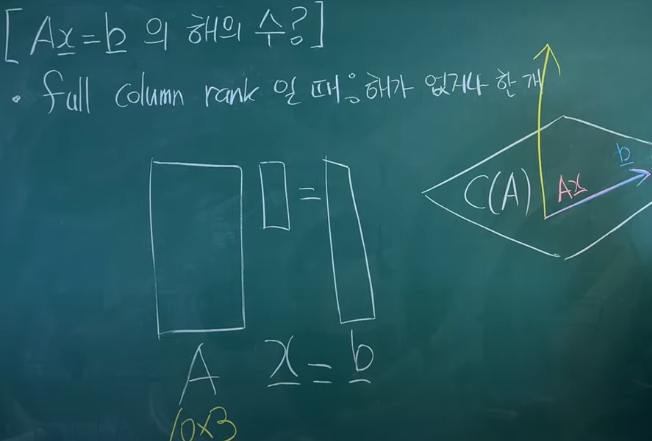 [Ax=b 의 해의 수?]
• full column rank 일 때는 해가 없거나 한 개
C(A) Ax b
=
A x = b
10×3